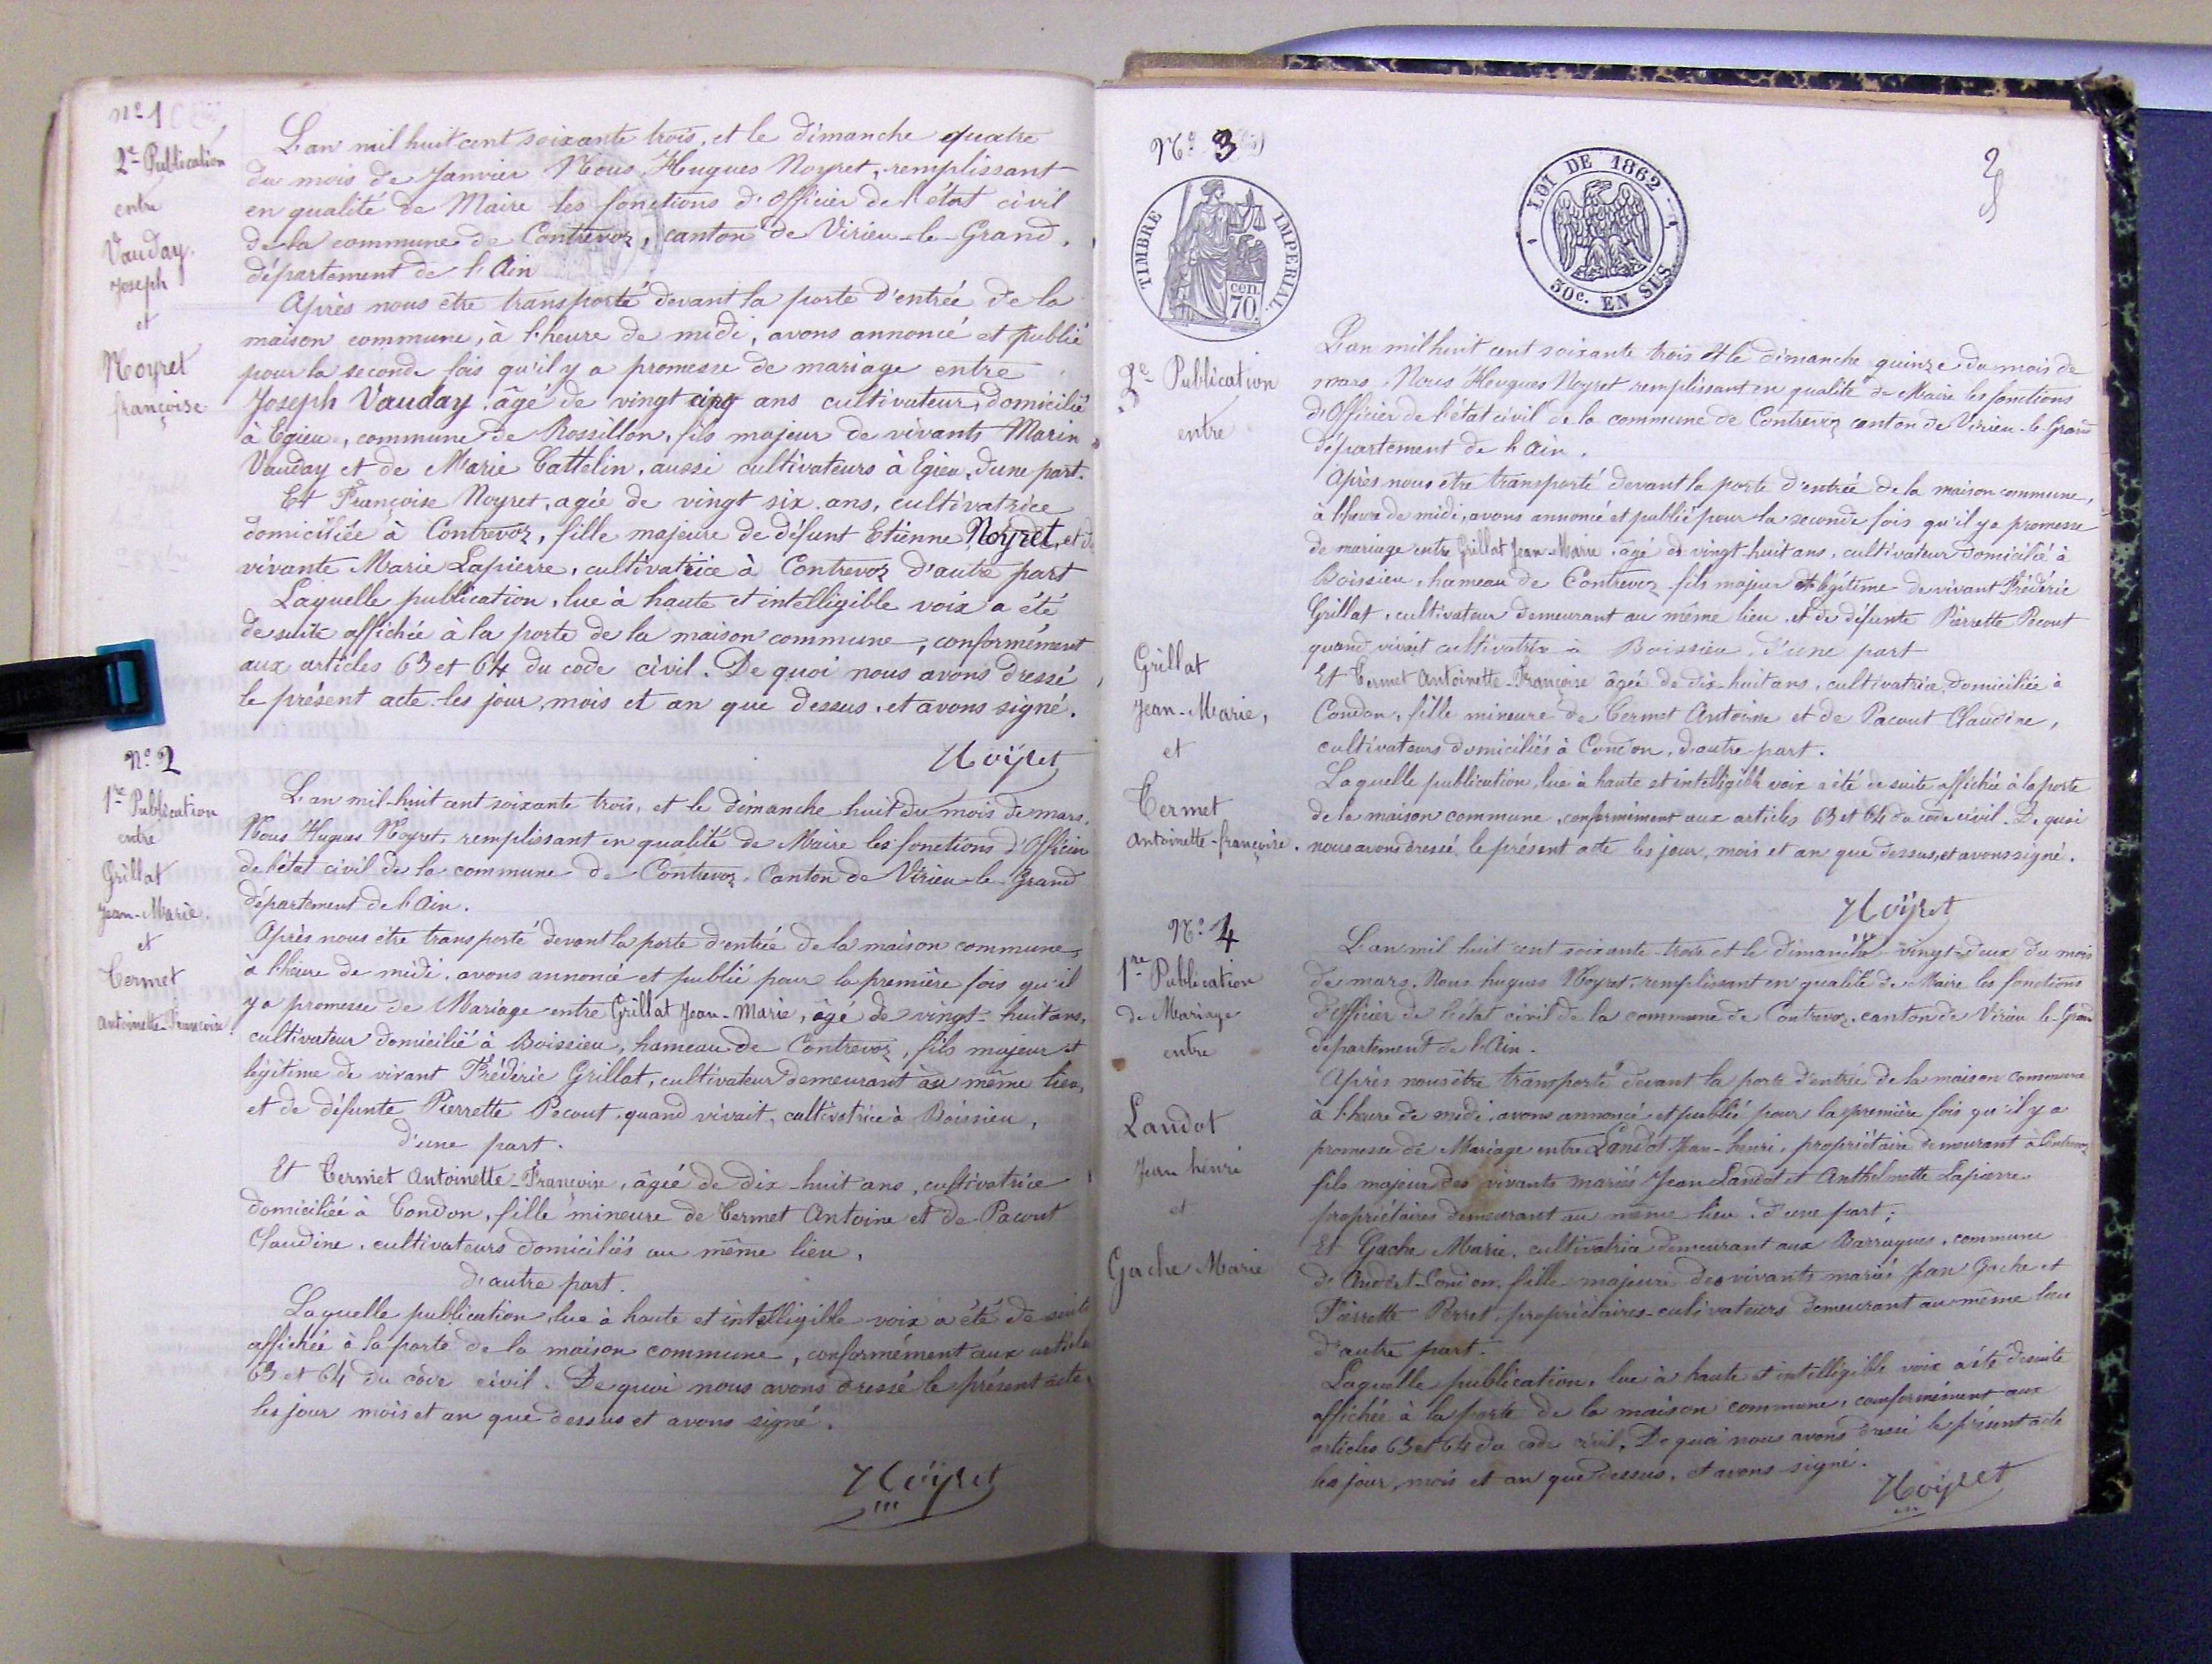 Nº 1
2e Publication
entre
Vauday
Joseph
et
Noyret
françoise
L'an mil huit cent soixante trois, et le dimanche quatre
du mois de Janvier Nous Hugues Noyret, remplissant
en qualité de Maire les fonctions d'Officier de l'état civil
de la commune de Contrevoz, canton de Virieu-le-Grand,
département de l'Ain
Après nous être transporté devant la porte d'entrée de la
maison commune, à l'heure de midi, avons annoncé et publié
pour la seconde fois qu'il y a promesse de mariage entre
Joseph Vauday, âgé de vingt cinq ans cultivateur, domicilié
à Egieu, commune de Rossillon, fils majeur de vivants Marin
Vauday et de Marie Cattelin, aussi cultivateurs à Egieu, d'une part.
Et Françoise Noyret, agée de vingt six ans, cultivatrice
domiciliée à Contrevoz, fille majeure de défunt Etienne Noyret, et de
vivante Marie Lapierre, cultivatrice à Contrevoz d'autre part
Laquelle publication, lue à haute et intelligible voix a été
de suite affichée à la porte de la maison commune, conformément
aux articles 63 et 64 du code civil. De quoi nous avons dressé
le présent acte les jour, mois et an que dessus, et avons signé.
Noÿret
Nº 2
1re Publication
entre
Grillat
Jean-Marie.
et
Cermet
Antoinette-Françoise.
L'an mil-huit cent soixante trois, et le dimanche huit du mois de mars.
Nous Hugues Noyret, remplissant en qualité de Maire les fonctions d'Officier
de l'état civil de la commune de Contrevoz, Canton de Virieu-le-Grand
département de l'Ain.
Après nous être transporté devant la porte d'entrée de la maison commune,
à l'heure de midi, avons annoncé et publié pour la première fois qu'il
y a promesse de Mariage entre Grillat Jean-Marie, âgé de vingt-huit ans,
cultivateur domicilié à Boissieu, hameau de Contrevoz, fils majeur et
légitime de vivant Frédéric Grillat, cultivateur demeurant au même lieu,
et de défunte Pierrette Pecout, quand vivait, cultivatrice à Boissieu,
d'une part.
Et Cermet Antoinette-Françoise, âgée de dix-huit ans, cultivatrice
domiciliée à Condon, fille mineure de Cermet Antoine et de Pacout
Claudine, cultivateurs domiciliés au même lieu,
d'autre part.
Laquelle publication, lue à haute et intelligible voix a été de suite
affichée à la porte de la maison commune, conformément aux articles
63 et 64 du code civil. De quoi nous avons dressé le présent acte
les jour mois et an que dessus et avons signé.
Noÿret
Nº 3
TIMBRE IMPERIAL
cen.
70
LOI DE 1862
50c. EN SUS
2
2e Publication
entre
Grillat
Jean-Marie,
et
Cermet
Antoinette-françoise.
L'an mil huit cent soixante trois et le dimanche quinze du mois de
mars. Nous Hugues Noyret remplissant en qualité de Maire les fonctions
d'Officier de l'état civil de la commune de Contrevoz canton de Virieu-le-Grand
département de l'Ain.
Après nous être transporté devant la porte d'entrée de la maison commune,
à l'heure de midi, avons annoncé et publié pour la seconde fois qu'il y a promesse
de mariage entre Grillat Jean-Marie, âgé de vingt-huit ans, cultivateur domicilié à
Boissieu, hameau de Contrevoz, fils majeur et légitime de vivant Frédéric
Grillat, cultivateur demeurant au même lieu, et de défunte Pierrette Pecout
quand vivait cultivatrice à Boissieu, d'une part
Et Cermet Antoinette-Françoise âgée de dix-huit ans, cultivatrice, domiciliée à
Condon, fille mineure de Cermet Antoine et de Pacout Claudine,
cultivateurs domiciliés à Condon, d'autre part.
Laquelle publication, lue à haute et intelligible voix a été de suite affichée à la porte
de la maison commune, conformément aux articles 63 et 64 du code civil. De quoi
nous avons dressé le présent acte les jour, mois et an que dessus, et avons signé.
Noÿret
Nº 4
1re Publication
de Mariage
entre
Landot
Jean henri
et
Gache Marie
L'an mil huit cent soixante-trois et le dimanche vingt-deux du mois
de mars, Nous hugues Noyret, remplissant en qualité de Maire les fonctions
d'Officier de l'état civil de la commune de Contrevoz, canton de Virieu le-Grand
département de l'Ain.
Après nous être transporté devant la porte d'entrée de la maison commune
à l'heure de midi, avons annoncé et publié pour la première fois qu'il y a
promesse de Mariage entre Landot Jean-henri, propriétaire demeurant à Contrevoz
fils majeur des vivants mariés Jean Landot et Anthelmette Lapierre
propriétaires demeurant au même lieu, d'une part;
Et Gache Marie, cultivatrice demeurant aux Barraques, commune
d'Andert-Condon, fille majeure des vivants mariés Jean Gache et
Pierrette Perret, propriétaires-cultivateurs demeurant au même lieu
d'autre part.
Laquelle publication, lue à haute et intelligible voix a été de suite
affichée à la porte de la maison commune, conformément aux
articles 63 et 64 du code civil. De quoi nous avons dressé le présent acte
les jour, mois et an que dessus, et avons signé.
Noÿret